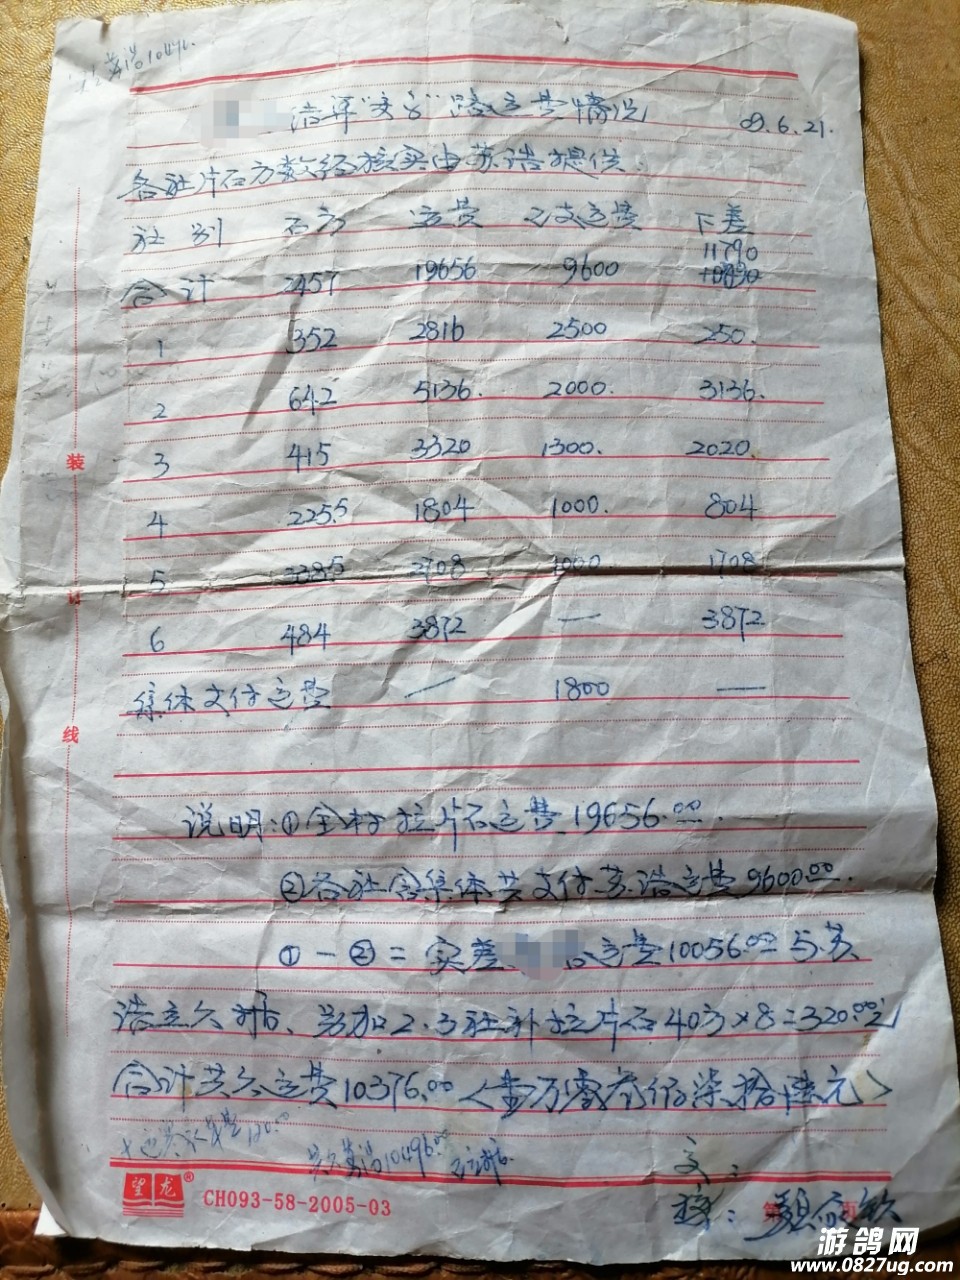 苏浩10496.
浩军"交 路运费情况 09.6.21.
各社片石方数经核实由苏浩提供.
社别 石方 运费 已支运费 下差
11790
合计 2457 19656 9600
1 352 2816 2500 250.
2 642 5136. 2000. 3136.
3 415 3320 1300. 2020.
4 225.5 1804 1000. 804
5 338.5 2708 1000 1708
6 484 3872 — 3872
集体支付运费 — 1800 —
说明:①全村拉片石运费19656.00.
②各社含集体共支付苏浩运费9600.00.
①-②=实差 运费10056.00 与苏
浩立欠据、另加2.3社补拉片石40方×8=320.00元
合计共欠运费10376.00<壹万零叁佰柒拾陆元>
120.00
苏浩10496.00 已立据.
交:
接:
装
订
线
望龙®
CH093-58-2005-03
第 页
游鸽网
www.0827ug.com